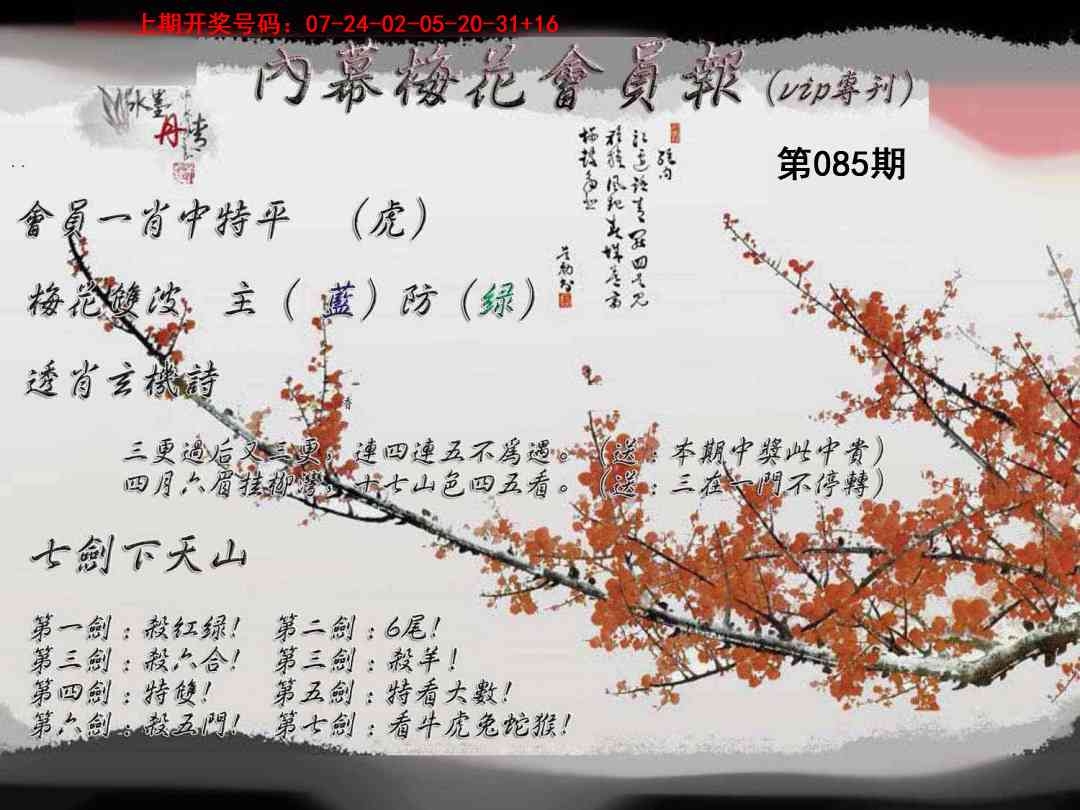 上期开奖号码：07-24-02-05-20-31+16
內幕梅花會員報（vip專刊）
水墨丹青
第085期
會員一肖中特平 （虎）
梅花雙波 主（ 藍）防（綠）
透肖玄機詩
三更過后又三更，連四連五不爲過。（送：本期中獎此中貴）
四月六眉挂柳灣，十七山色四五看。（送：三在一門不停轉）
七劍下天山
第一劍：殺紅绿！ 第二劍：6尾！
第三劍：殺六合！ 第三劍：殺羊！
第四劍：特雙！ 第五劍：特看大數！
第六劍：殺五門！ 第七劍：看牛虎兔蛇猴！